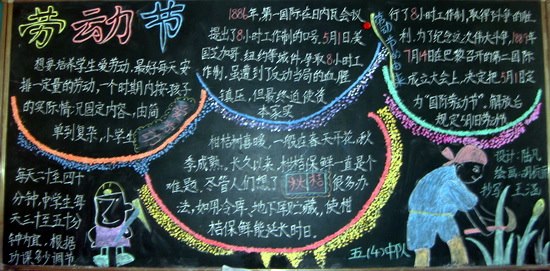 劳动节
想要培养学生爱劳动,最好每天安
排一定量的劳动,一个时期内按孩子
的实际情况固定内容,由简
单到复杂,小学生
每天二十至四十
分钟,中学生每
天三十至五十分
钟为宜,根据
功课多少调节
1886年,第一国际在日内瓦会议
提出了8小时工作制的口号,5月1日美
国芝加哥、纽约等城市争取8小时工
作制,虽遭到了反动当局的血腥
镇压,但最终迫使资
本家实
行了8小时工作制,取得斗争的胜
利,为了纪念这次伟大斗争,1889年
7月14日在巴黎召开的第二国际
成立大会上,决定把5月1日定
为"国际劳动节"。解放后
规定5月1日劳动节
柑桔树喜暖,一般在春天开花,秋
季成熟。长久以来,柑桔保鲜一直是个
难题,尽管人们想了很多办
法,如用冷库、地下库贮藏,使柑
桔保鲜能延长时日。
五(4)中队
设计:
绘画:
抄写: